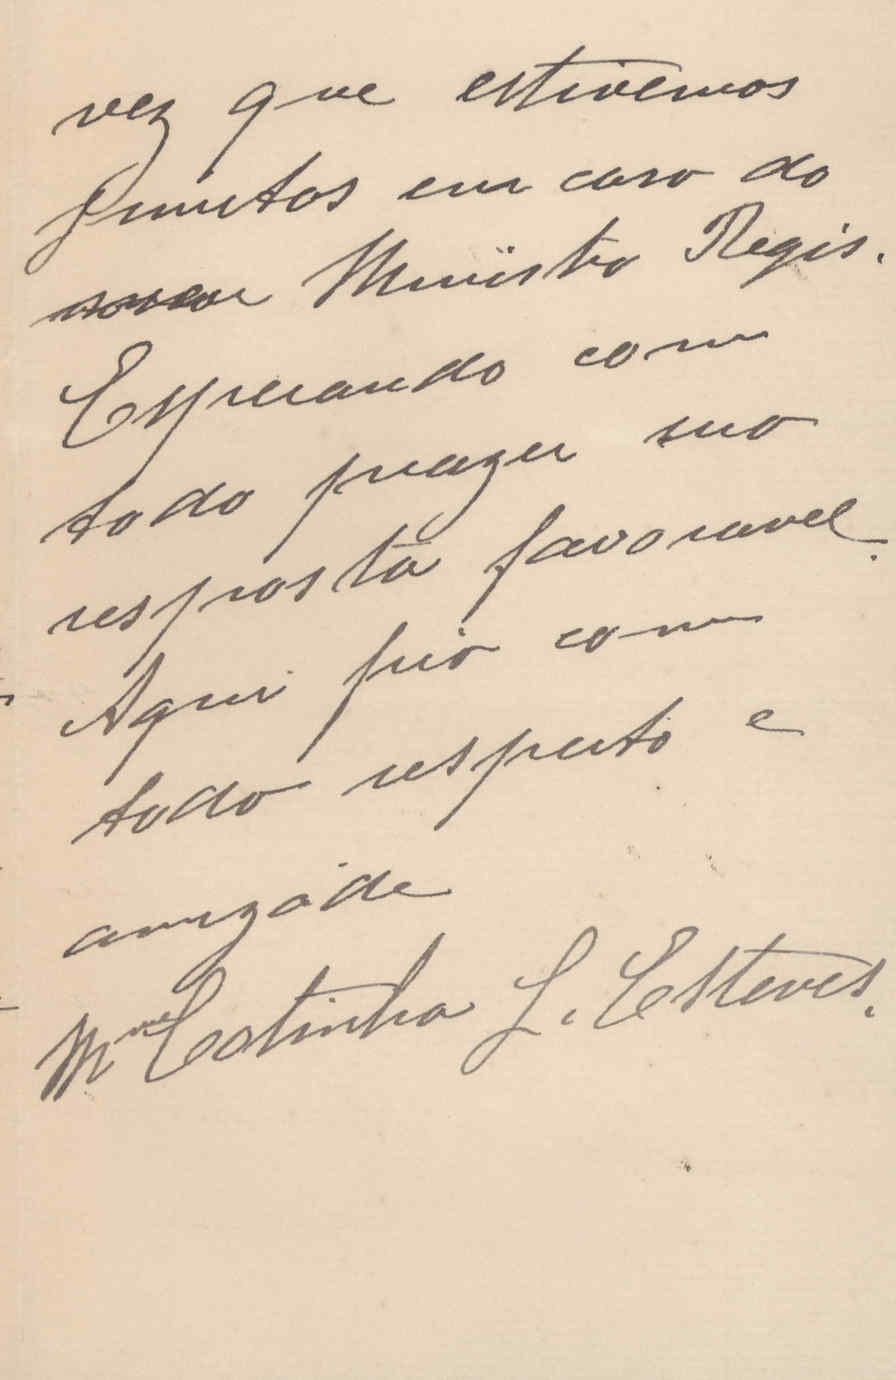 vez que estivemos
juntos em casa do
Ministro Regis.
Esperando com
todo prazer sua
resposta favoravel.
Aqui fico com
todo respeito e
amizade
Mme Cotinha L. Esteves.